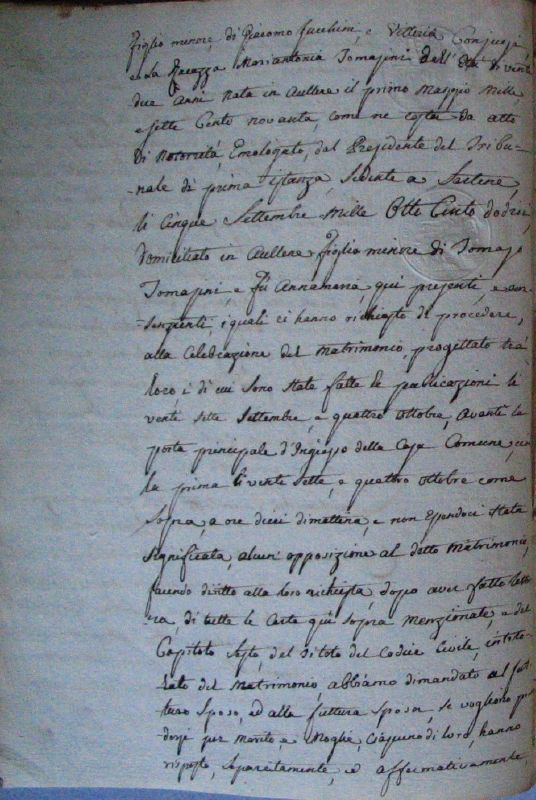 figlio minore, di Giacomo Lucchini, e Vittoria Conjugi,
e la Ragazza Mariantonia Tomasini dell'età di vinti
due Anni nata in Aullene il primo Maggio Mille,
e sette Cento novanta, come ne costa da atto
di Notorietà, Emologato, dal Presidente del Tribu-
-nale di prima istanza, Sedente a Sartene,
li Cinque Settembre Mille Otto Cento dodici,
Domiciliato in Aullene figlia minore di Tomaso
Tomasini, e fù Annamaria, qui presenti, e con-
-senzienti, i quali ci hanno richiesto di procedere,
alla Celebrazione del Matrimonio, progettato trà
loro, i di cui sono state fatte le publicazioni li
venti sette Settembre, e quattro ottobre, Avanti la
porta principale d'Ingresso della Casa Comune,
la prima li venti sette, e quattro ottobre come
sopra, a ore dieci di mattina, e non essendoci stata
significata, alcuni opposizione al detto Matrimonio,
facendo diritto alla loro richiesta, dopo aver fatto lettu-
-ra, di tutte le Carte qui sopra menzionate, e del
Capitolo sesto, del Titolo del Codice Civile, intito-
-lato del Matrimonio, abbiamo dimandato al fut-
turo Sposo, ed alla futtura Sposa, se vogliono
per Marito e Moglie, Ciascuno di loro, hanno
risposto, separatamente, ed affermativamente,